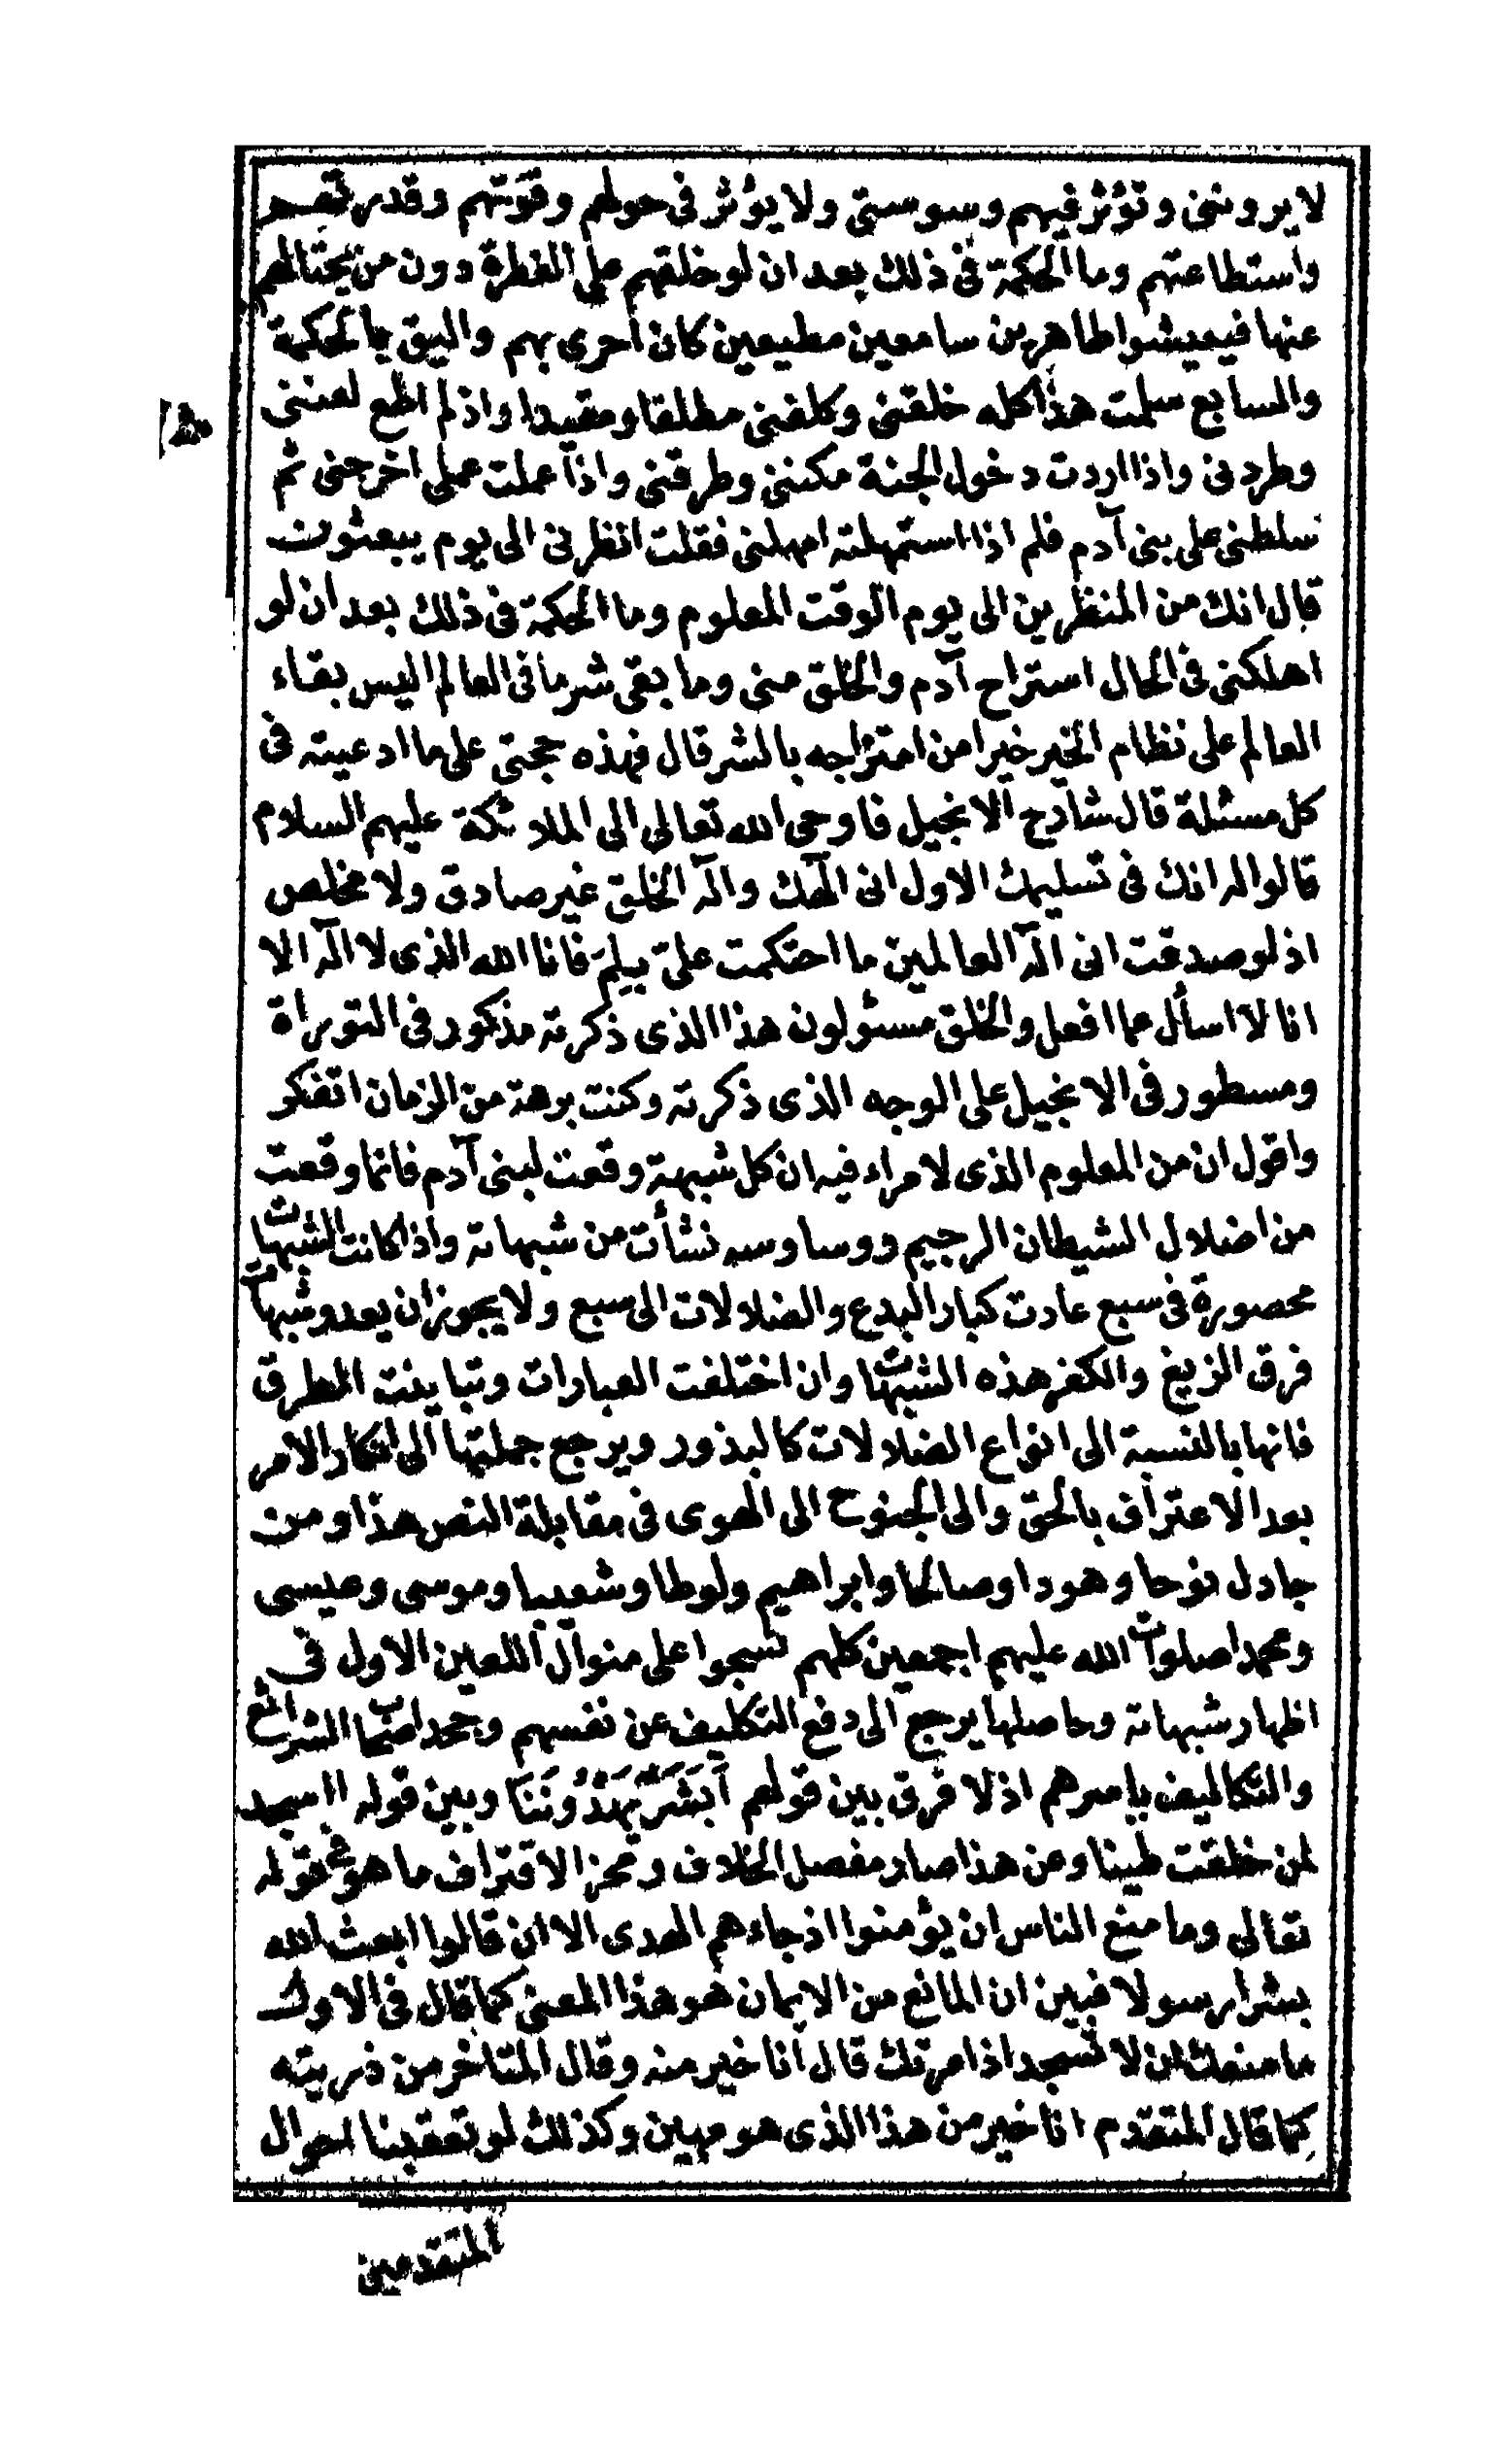 لا يروننى وتؤثر فيهم وسوستى ولا يؤثر فى حولهم وقوتهم وقدرتهم
واستطاعتهم وما الحكمة فى ذلك بعد ان لو خلقهم على الفطرة دون من يحتالهم
عنها فيعيشوا طاهرين سامعين مطيعين كان احرى بهم واليق بالحكمة
والسابع سلمت هذا كله خلقنى وكلفنى مطلقا ومقيدا واذ لم اطع لعننى
وطردنى واذا اردت دخول الجنة مكننى وطرقنى واذا عملت عملى اخرجنى ثم
سلطنى على بنى آدم فلم اذا استمهلته امهلنى فقلت انظرنى الى يوم يبعثون
قال انك من المنظرين الى يوم الوقت المعلوم وما الحكمة فى ذلك بعد ان لو
اهلكنى فى الحال استراح آدم والخلق منى وما بقى شر ما فى العالم اليس بقاء
العالم على نظام الخير خيرا من امتزاجه بالشر قال فهذه حجتى على ما ادعيته فى
كل مسئلة قال شارح الانجيل فاوحى الله تعالى الى الملائكة عليهم السلام
قالوا له انك فى تسليمك الاول انى الهك واله الخلق غير صادق ولا مخلص
اذ لو صدقت انى اله العالمين ما احتكمت على بلم فانا الله الذى لا اله الا
انا لا اسأل عما افعل والخلق مسئولون هذا الذى ذكرته مذكور فى التوراة
ومسطور فى الانجيل على الوجه الذى ذكرته وكنت برهة من الزمان اتفكر
واقول ان من المعلوم الذى لا مراء فيه ان كل شبهة وقعت لبنى آدم فانما وقعت
من اضلال الشيطان الرجيم ووساوسه نشأت من شبهاته واذا كانت الشبهات
محصورة فى سبع عادت كبار البدع والضلالات الى سبع ولا يجوز ان يعدو شبهات
فرق الزيغ والكفر هذه الشبهات وان اختلفت العبارات وتباينت الطرق
فانها بالنسبة الى انواع الضلالات كالبذور ويرجع جملتها الى انكار الامر
بعد الاعتراف بالحق والى الجنوح الى الهوى فى مقابلة النص هذا ومن
جادل نوحا وهودا وصالحا وابراهيم ولوطا وشعيبا وموسى وعيسى
ومحمدا صلوات الله عليهم اجمعين كلهم نسجوا على منوال اللعين الاول فى
اظهار شبهاته وحاصلها يرجع الى دفع التكليف عن نفسهم وجحد اصحاب الشرائع
والتكاليف باسرهم اذ لا فرق بين قولهم أَبَشَرٌ يَهْدُونَنَا وبين قوله ااسجد
لمن خلقت طينا وعن هذا صار مفصل الخلاف ومحز الافتراق ما هو فى قوله
تعالى وما منع الناس ان يؤمنوا اذ جاءهم الهدى الا ان قالوا ابعث الله
بشرا رسولا فبين ان المانع من الايمان هو هذا المعنى كما قال فى الاول
ما منعك ان لا تسجد اذ امرتك قال أنا خير منه وقال المتاخر من ذريته
كما قال المتقدم انا خير من هذا الذى هو مهين وكذلك لو تعقبنا احوال
المتقدمين